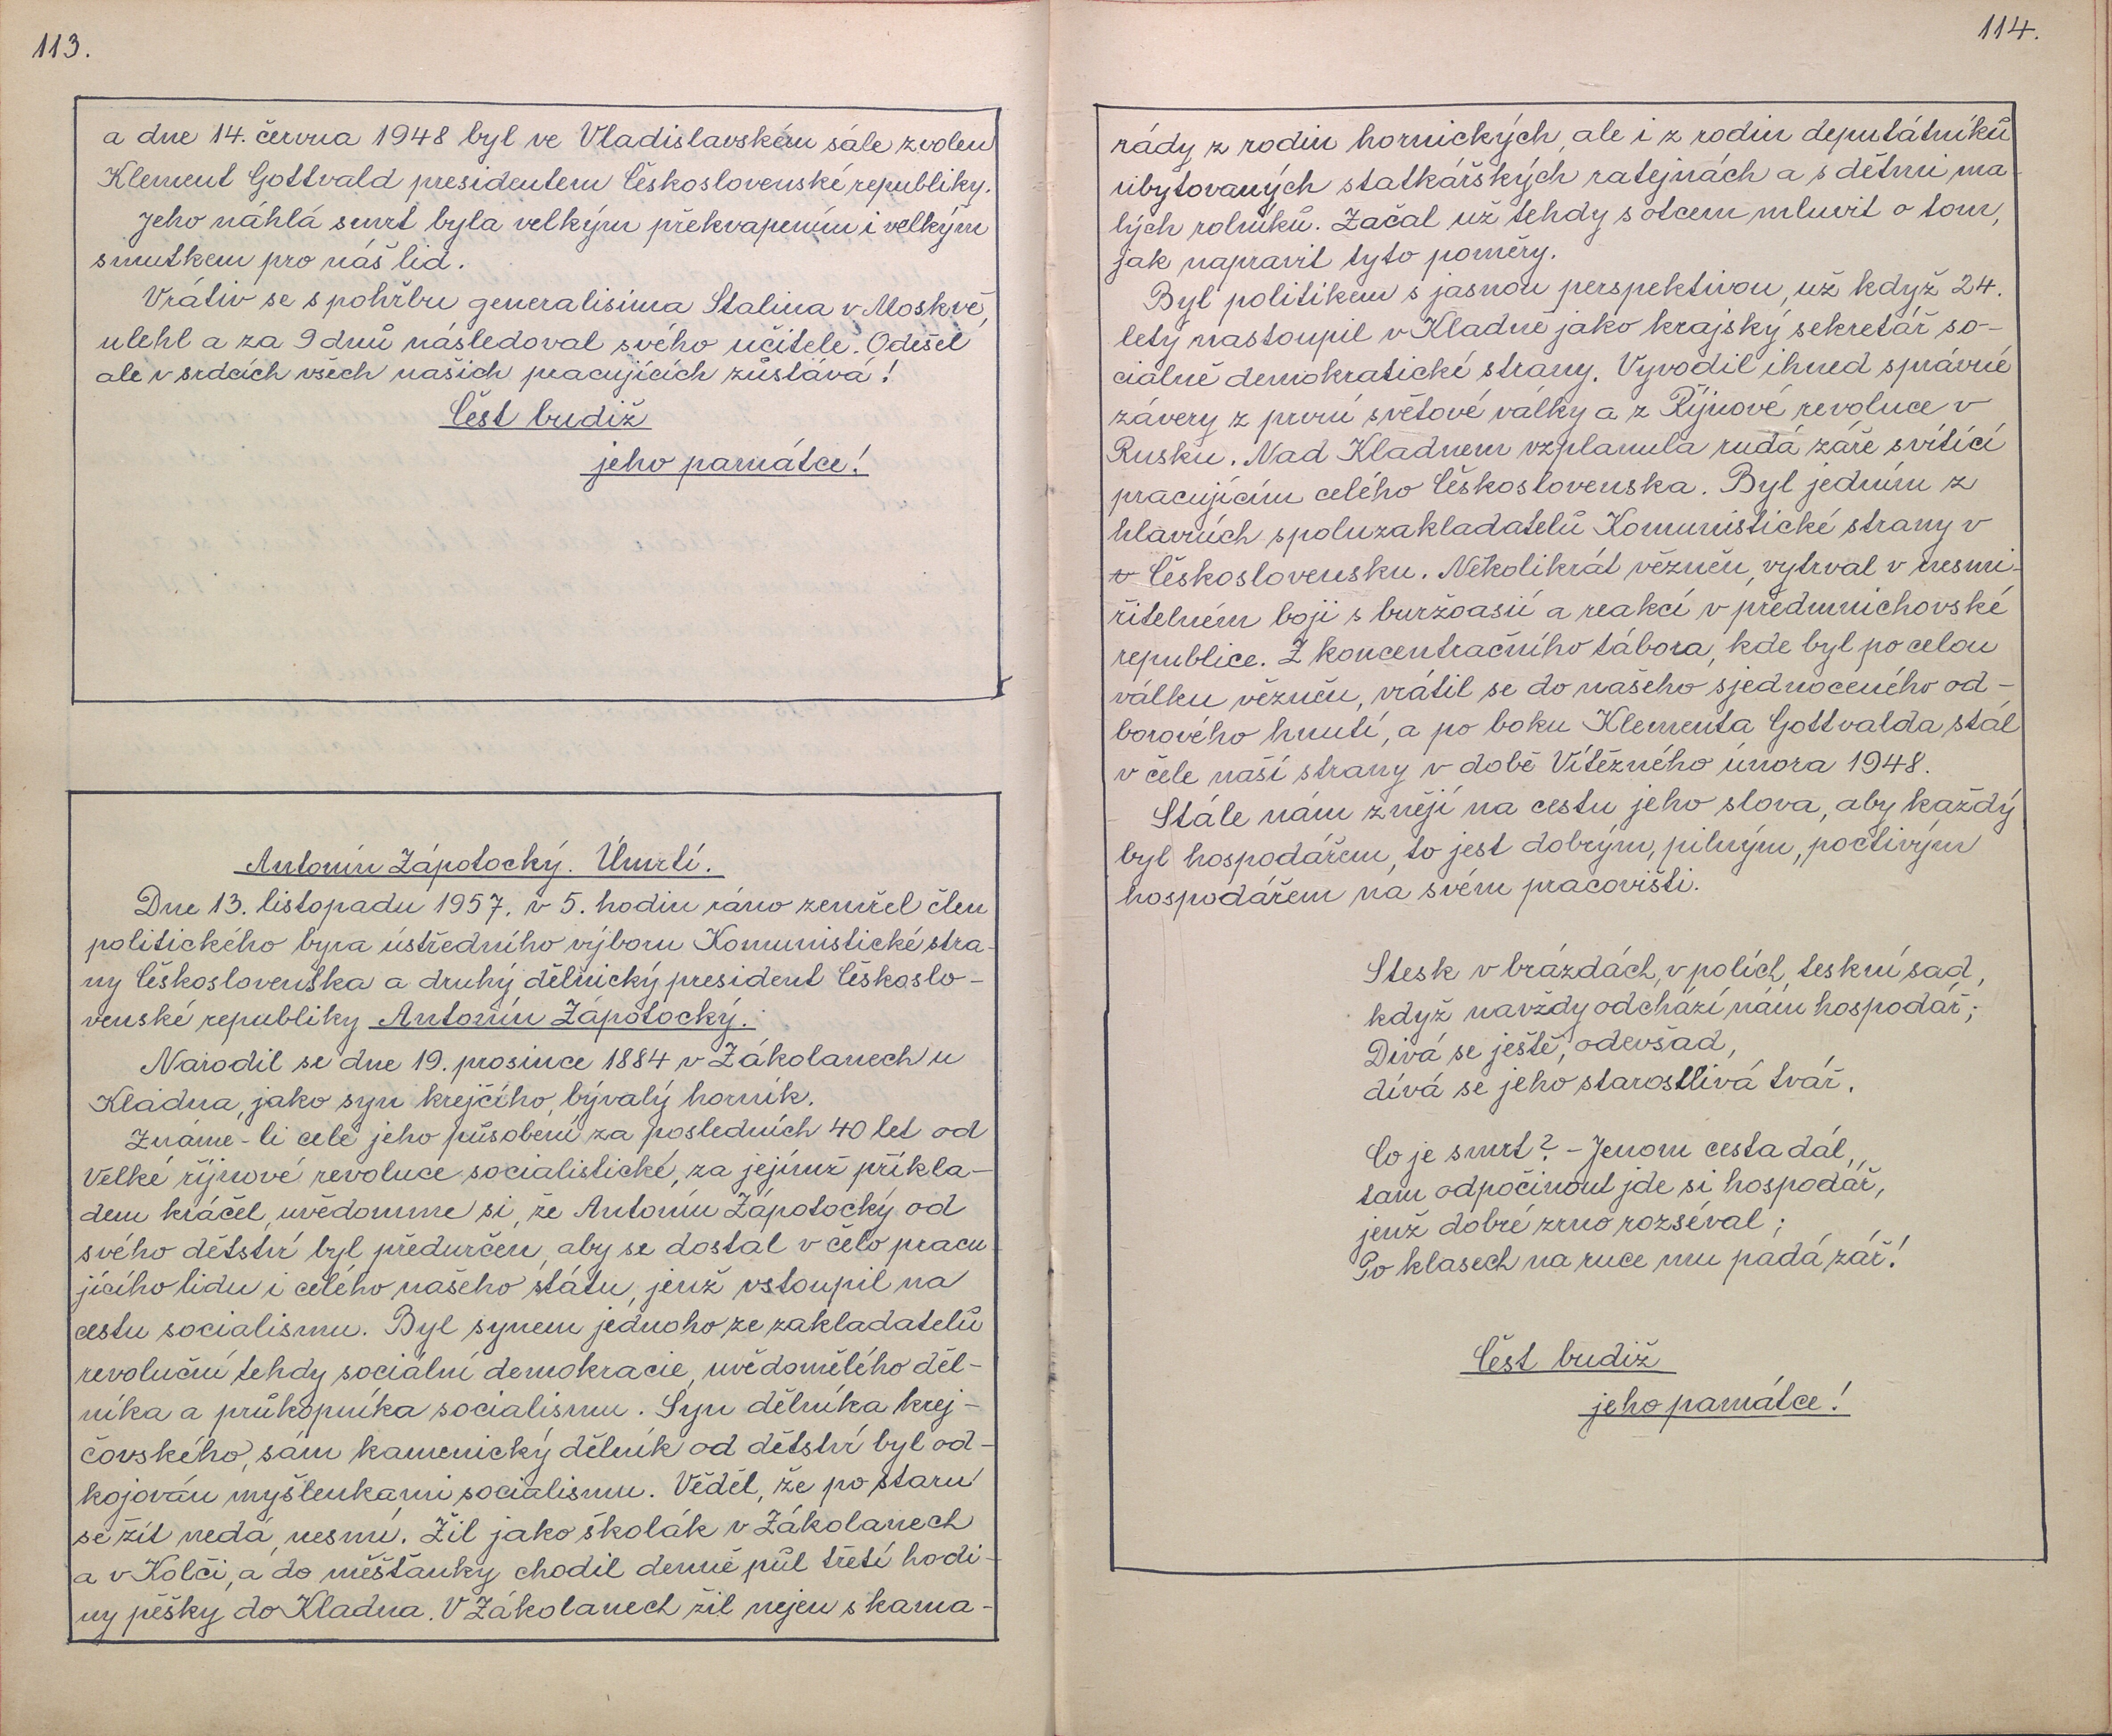 113.
a dne 14. června 1948 byl ve Vladislavském sále zvolen
Klement Gottvald presidentem Československé republiky.
Jeho náhlá smrt byla velkým překvapením i velkým
smutkem pro náš lid.
Vrátiv se s pohřbu generalisima Stalina v Moskvě,
ulehl a za 9 dnů následoval svého učitele. Odešel
ale v srdcích všech našich pracujících zůstává!
Čest budiž
jeho památce!
Antonín Zápotocký. Úmrtí.
Dne 13. listopadu 1957. v 5. hodin ráno zemřel člen
politického byra ústředního výboru Komunistické stra-
ny Československa a druhý dělnický president Českoslo-
venské republiky Antonín Zápotocký.
Narodil se dne 19. prosince 1884 v Zákolanech u
Kladna, jako syn krejčího, bývalý horník.
Známe-li celé jeho působení za posledních 40 let od
Velké říjnové revoluce socialistické, za jejímž příkla-
dem kráčel, uvědomme si, že Antonín Zápotocký od
svého dětství byl předurčen, aby se dostal v čelo pracu-
jícího lidu i celého našeho státu, jenž vstoupil na
cestu socialismu. Byl synem jednoho ze zakladatelů
revoluční tehdy sociální demokracie, uvědomělého děl-
níka a průkopníka socialismu. Syn dělníka krej-
čovského, sám kamenický dělník od dětství byl od-
kojován myšlenkami socialismu. Věděl, že po staru
se žít nedá, nesmí. Žil jako školák v Zákolanech
a v Kolči, a do měšťanky chodil denně půl třetí hodi-
ny pěšky do Kladna. V Zákolanech žil nejen s kama-
114.
rády z rodin hornických, ale i z rodin deputátníků
ubytovaných statkářských ratejnách a s dětmi ma-
lých rolníků. Začal už tehdy s otcem mluvit o tom,
jak napravit tyto poměry.
Byl politikem s jasnou perspektivou, už když 24.
letý nastoupil v Kladně jako krajský sekretář so-
ciálně demokratické strany. Vyvodil ihned správné
závery z první světové války a z Říjnové revoluce v
Rusku. Nad Kladnem vzplanula rudá záře svítící
pracujícím celého Československa. Byl jedním z
hlavních spoluzakladatelů Komunistické strany v
v Československu. Několikrát vězněn, vytrval v nesmi-
řitelném boji s buržoasií a reakcí v předmnichovské
republice. Z koncentračního tábora, kde byl po celou
válku vězněn, vrátil se do našeho sjednoceného od-
borového hnutí, a po boku Klementa Gottvalda stál
v čele naší strany v době Vítězného února 1948.
Stále nám znějí na cestu jeho slova, aby každý
byl hospodářem, to jest dobrým, pilným, poctivým
hospodářem na svém pracovišti.
Stesk v brázdách, v polích, teskní sad,
když navždy odchází nám hospodář;
Dívá se ještě, odevšad,
dívá se jeho starostlivá tvář.
Co je smrt? - Jenom cesta dál,
tam odpočinout jde si hospodář,
jenž dobré zrno rozséval;
Po klasech na ruce mu padá zář!
Čest budiž
jeho památce!